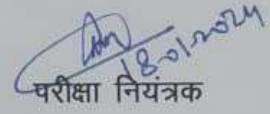 18/01/2024
परीक्षा नियंत्रक